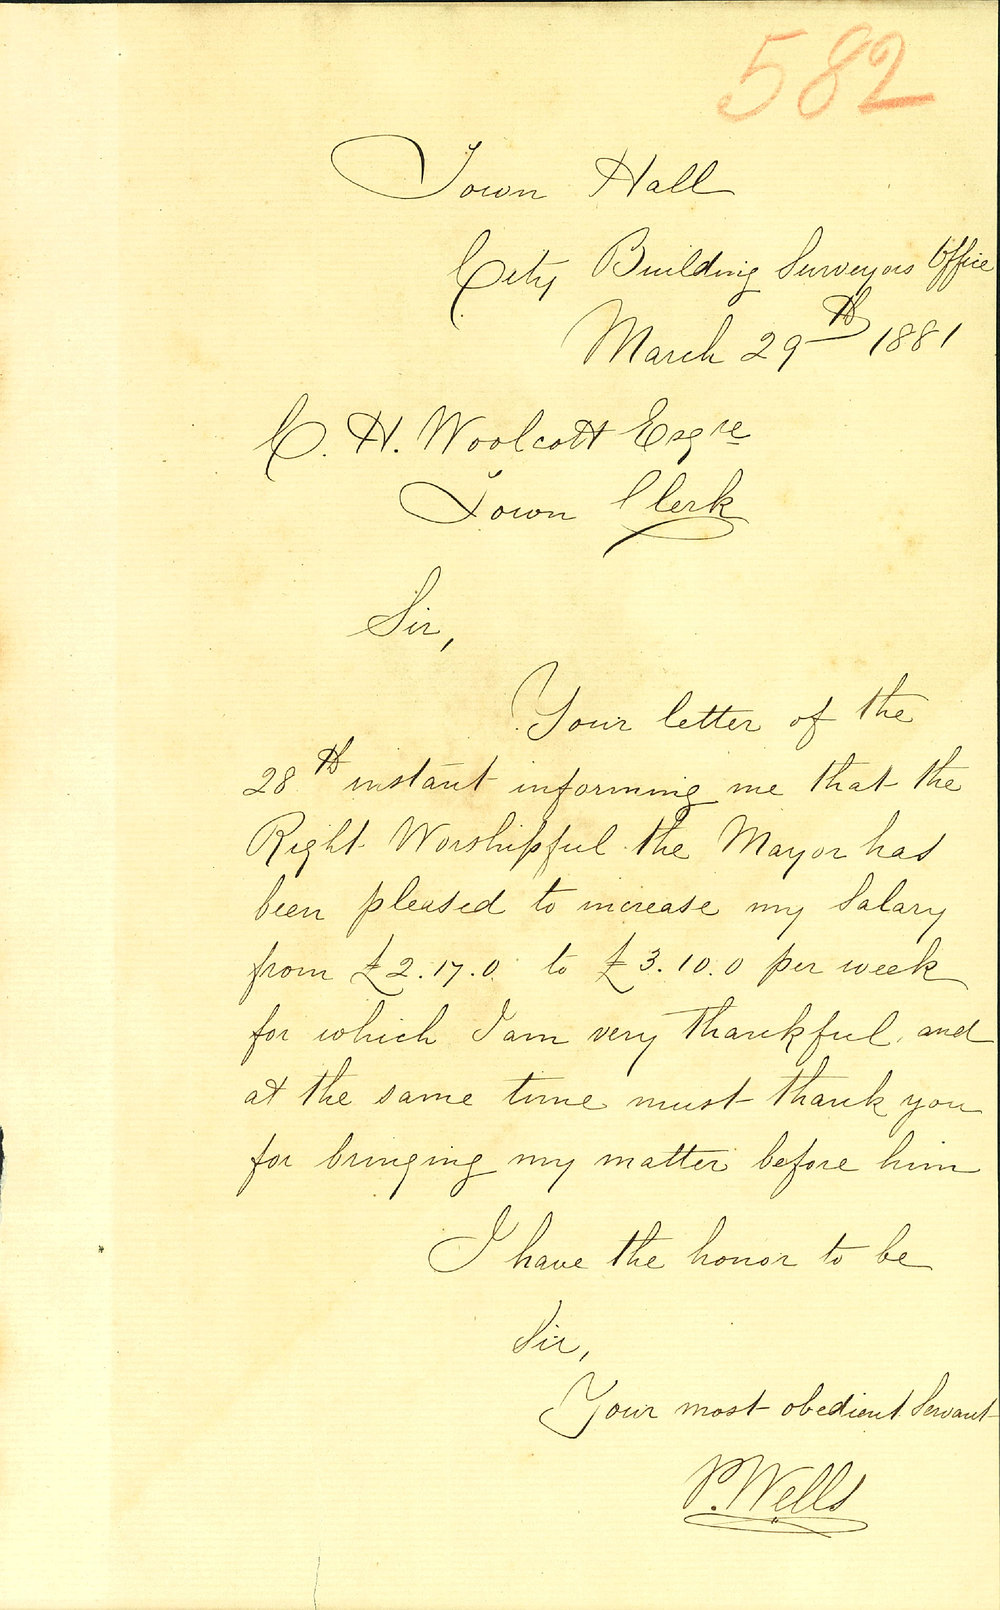 582
Town Hall
City Building Surveyors Office
March 29th 1881
C. H. Woolcott Esqre
Town Clerk
Sir,
Your letter of the
28th instant informing me that the
Right Worshipful the Mayor has
been pleased to increase my Salary
from £2.17.0 to £3.10.0 per week
for which I am very thankful, and
at the same time must thank you
for bringing my matter before him
I have the honor to be
Sir,
Your most obedient Servant
P. Wells